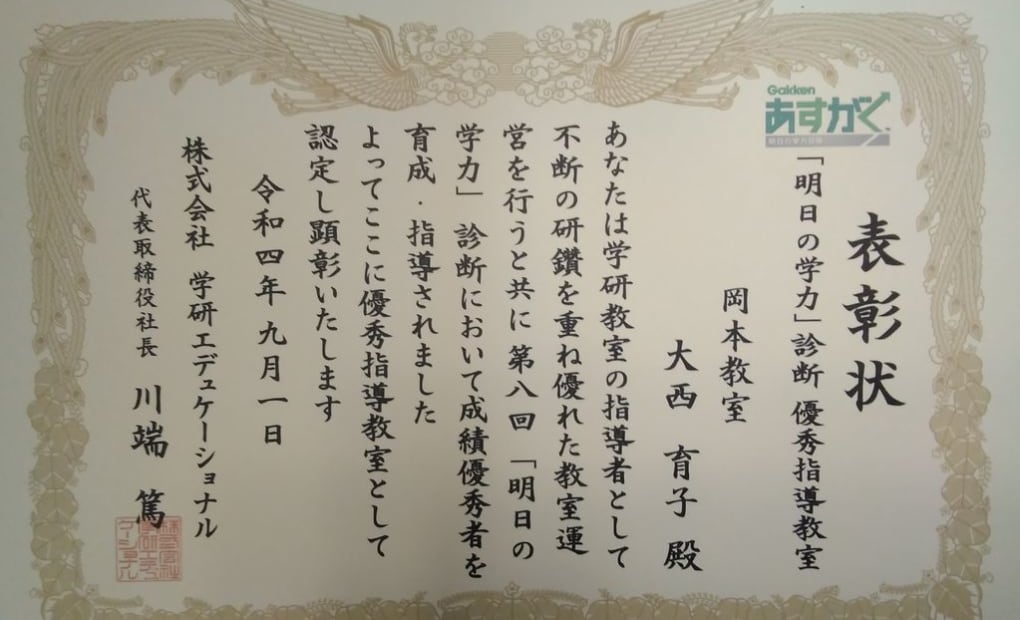 表彰状
Gakken
あすがく
「明日の学力」診断 優秀指導教室
岡本教室
大西 育子 殿
あなたは学研教室の指導者として
不断の研鑽を重ね優れた教室運
営を行うと共に第八回「明日の
学力」診断において成績優秀者を
育成・指導されました
よってここに優秀指導教室として
認定し顕彰いたします
令和四年九月一日
株式会社 学研エデュケーショナル
代表取締役社長 川端 篤